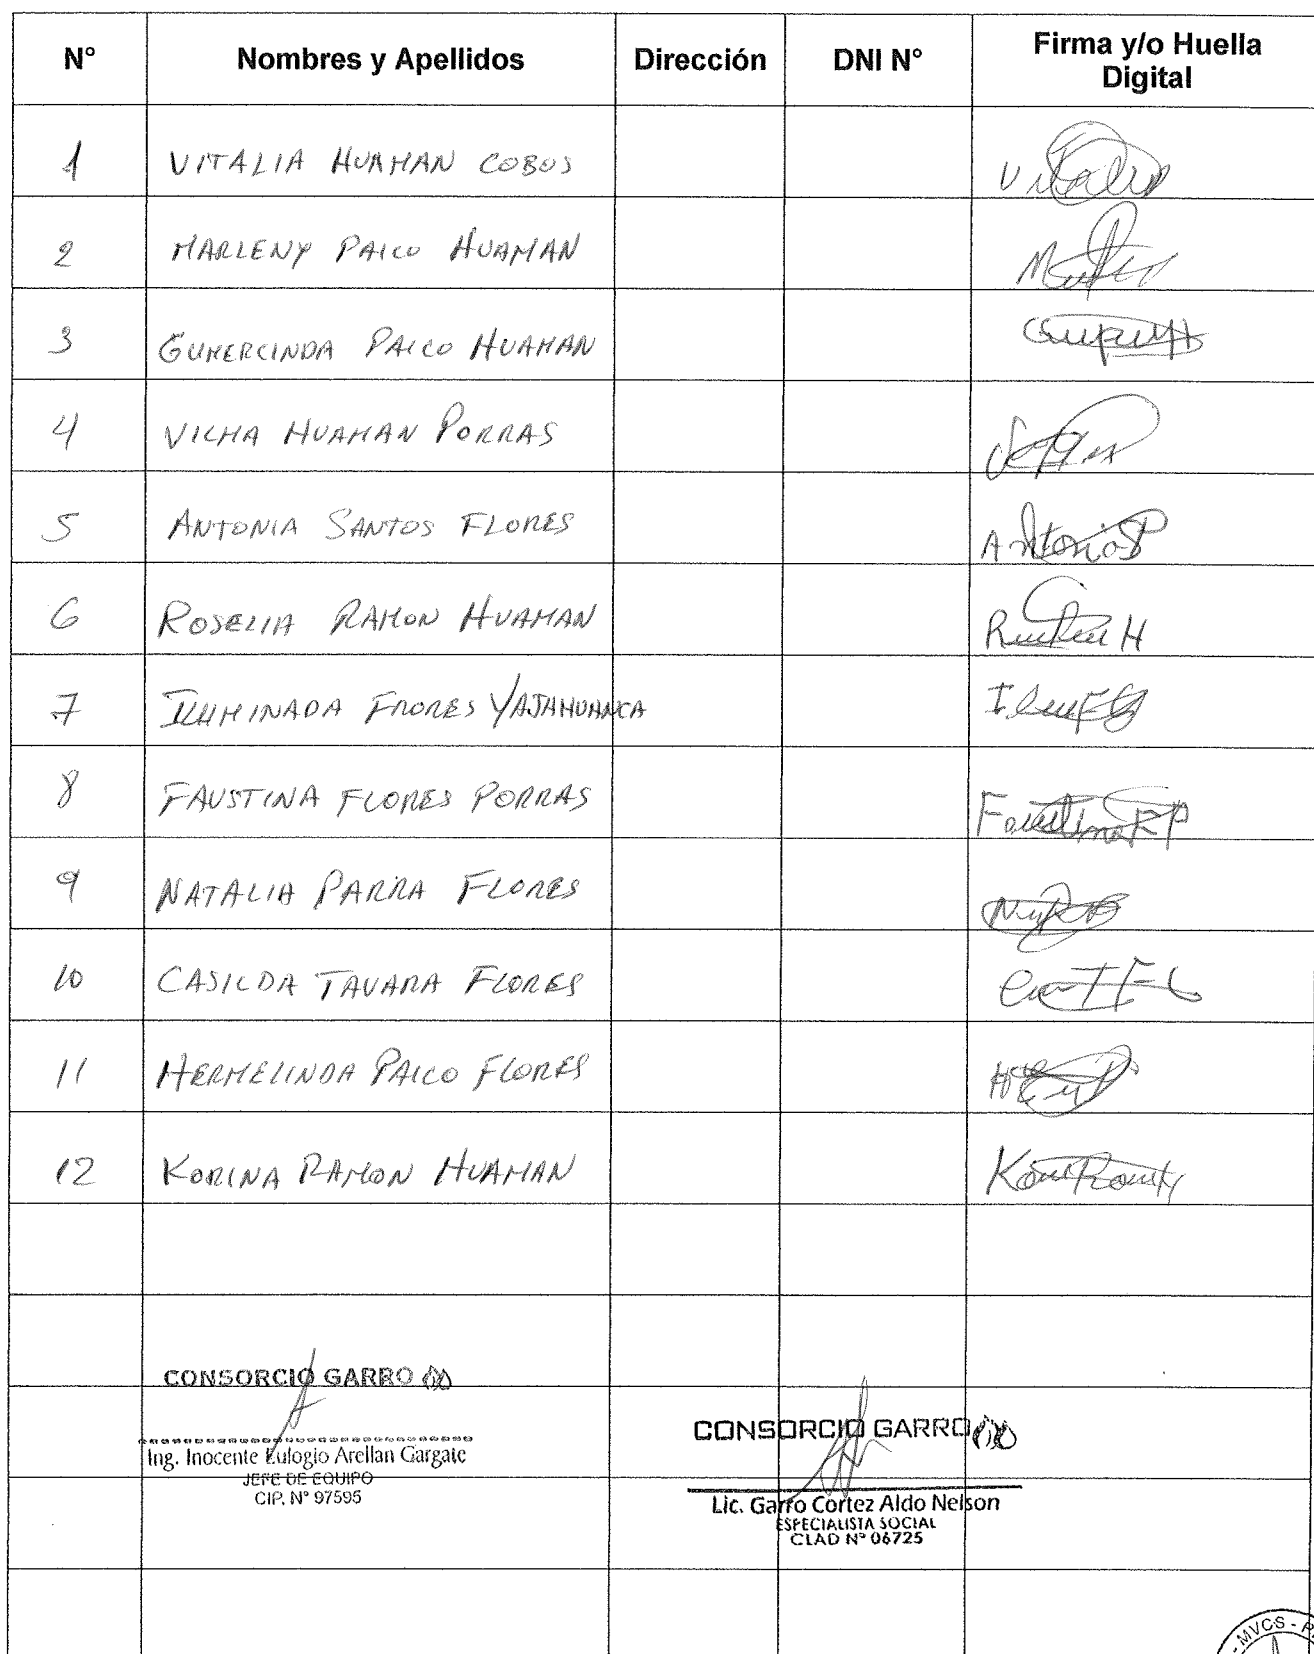 N° Nombres y Apellidos Dirección DNI N° Firma y/o Huella Digital
1 VITALIA HUAMAN COBOS
2 MARLENY PAICO HUAMAN
3 GUMERCINDA PAICO HUAMAN
4 VILMA HUAMAN PORRAS
5 ANTONIA SANTOS FLORES Antonia
6 ROSELIA RAMON HUAMAN
7 ILUMINADA FLORES YAJAHUANCA
8 FAUSTINA FLORES PORRAS Faustina F P
9 NATALIA PARRA FLORES
10 CASILDA TAVARA FLORES
11 HERMELINDA PAICO FLORES
12 KORINA RAMON HUAMAN
CONSORCIO GARRO
Ing. Inocente Eulogio Arellan Gargate
JEFE DE EQUIPO
CIP. N° 97595
CONSORCIO GARRO
Lic. Garro Cortez Aldo Nelson
ESPECIALISTA SOCIAL
CLAD N° 06725
MVCS